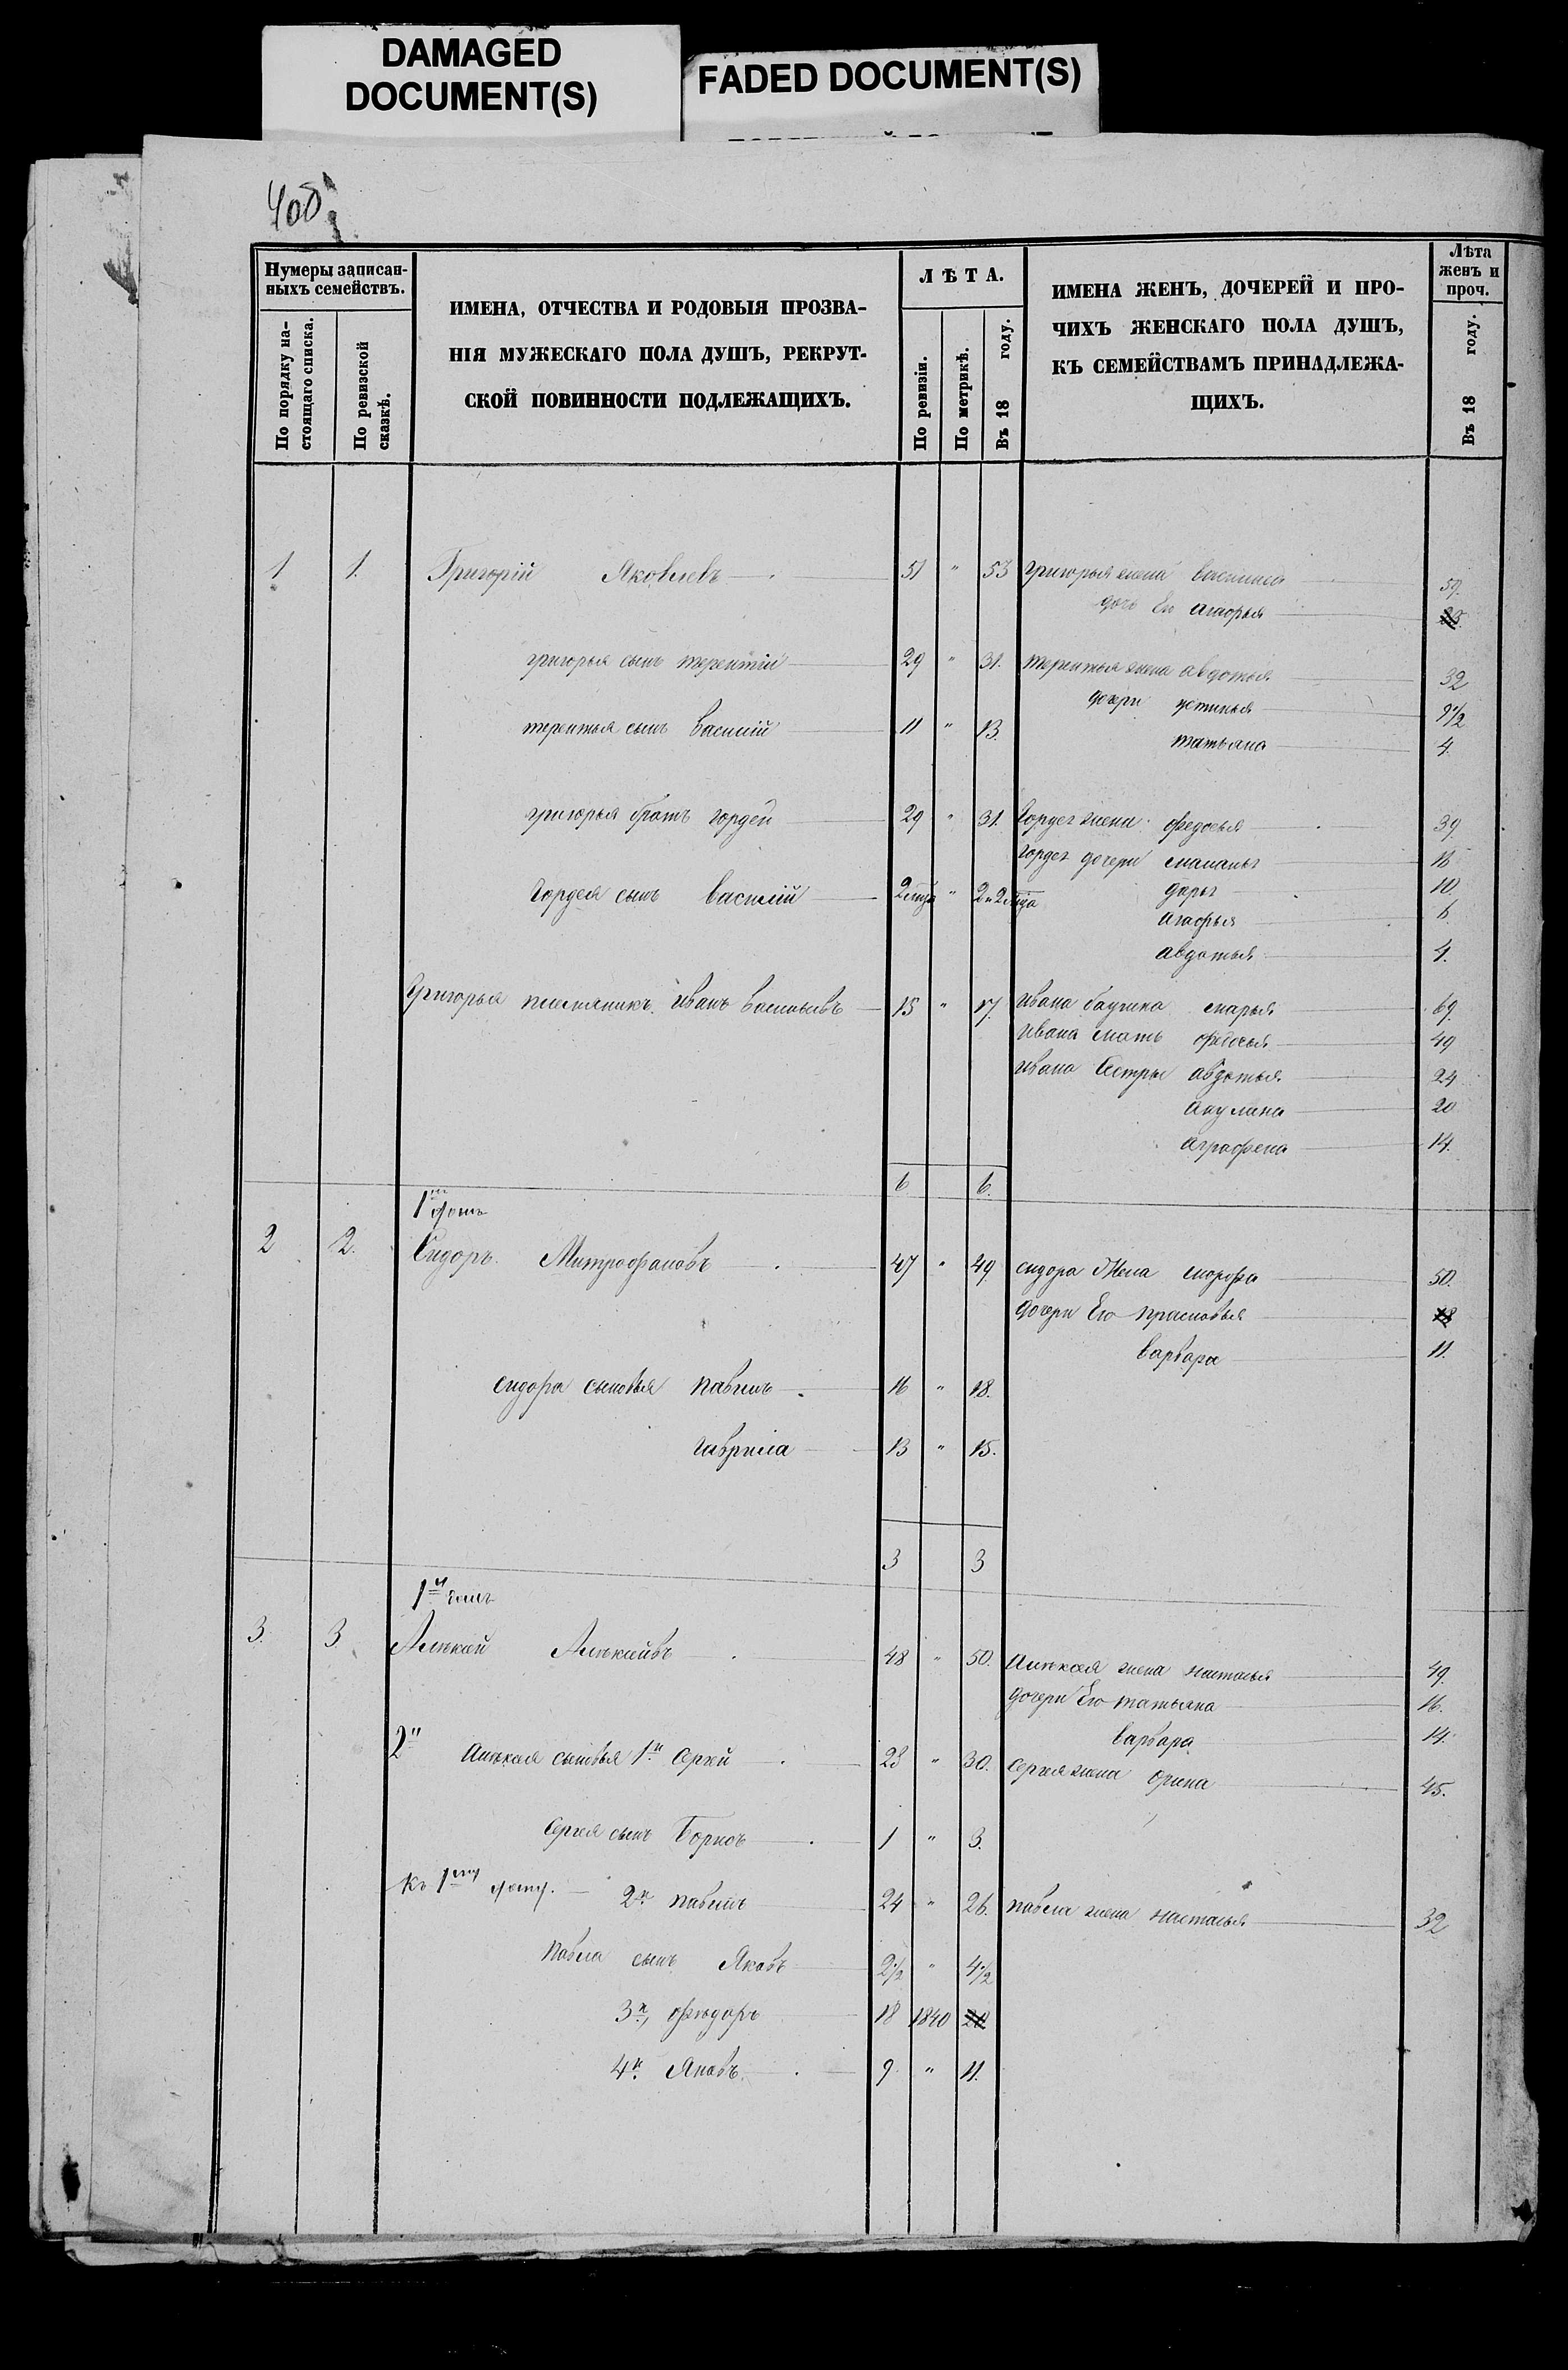 DAMAGED
DOCUMENT(S)
FADED DOCUMENT(S)
408
Нумеры записан-
ныхъ семействъ.
По порядку на-
стоящаго списка.
По ревизской
сказкѣ.
ИМЕНА, ОТЧЕСТВА И РОДОВЫЯ ПРОЗВА-
НІЯ МУЖЕСКАГО ПОЛА ДУШЪ, РЕКРУТ-
СКОЙ ПОВИННОСТИ ПОДЛЕЖАЩИХЪ.
ЛѢТА.
По ревизіи.
По метрикѣ.
Въ 18 году.
ИМЕНА ЖЕНЪ, ДОЧЕРЕЙ И ПРО-
ЧИХЪ ЖЕНСКАГО ПОЛА ДУШЪ,
КЪ СЕМЕЙСТВАМЪ ПРИНАДЛЕЖА-
ЩИХЪ.
Лѣта
женъ и
проч.
Въ 18 году.
1 1. Григорій Яковлевъ 51 " 53 Григорья жена 59.
дочь Ею агафья
григорья сынъ терентій 29 " 31. терентья жена авдотья 32
дочери устинья 9 1/2
терентья сынъ василій 11 " 13.
татьяна 4.
григорья братъ гордей 29 " 31. Гордея жена федосья 39.
гордея дочери 18
Гордея сынъ василій " дарья 10.
агафья 6
авдотья 4.
Григорья племяникъ иванъ васильевъ 15 " 17. ивана марья 69.
ивана мать федосья 49
ивана Сестры авдотья 24
акулина 20
аграфена 14.
6 6.
1й домъ
2 2. Сидоръ Митрофановъ 47 " 49 сидора Жена марфа 50.
дочери Его прасковья 18
варвара 11.
сидора сыновья павелъ 16 " 18.
гаврила 13 " 15.
3 3
1й домъ
3. 3 Алекѣй Алекѣйвъ 48 " 50. алекѣя жена наталья 49.
дочери Его татьяна 16.
варвара 14.
2й алекѣя сыновья 1й Сергей 28 " 30. Сергея жена Орина 45.
Сергея сынъ Борисъ 1 " 3.
къ 1му дому. 2й павелъ 24 " 26. павела жена наталья 32
Павла сынъ Яковъ 2 1/2 " 4 1/2
3й, фѣдоръ 18 1840 20
4й Яковъ 9 " 11.